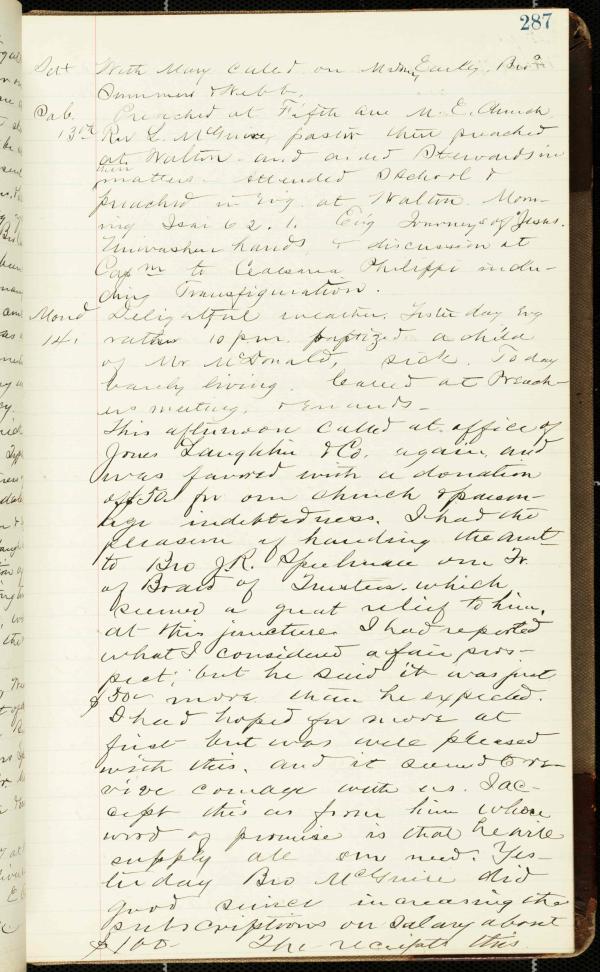 287
Sat With Mary called on Mrs Early, Bros
Summers & Webb.
Sab. Preached at Fifth Ave M. E. Church
13th Rev L. McGuire, pastor then preached
at Walton and aided Stewards in
their matters. Attended S School &
preached in Evg. at Walton. Morn-
ing Isai 62.1. Evg Journeys of Jesus.
Unwashen hands & discussion at
Capm to Ceasarea Philippi inclu-
ding Transfiguration.
Mond Delightful weather. Yesterday Evg
14. rather 10 p.m. baptized a child
of Mr McDonald, sick. To day
barely living. Called at Preach-
ers meeting, & errands -
This afternoon called at office of
Jones Laughlin & Co. again, and
was favored with a donation
of $50 for our church & parson-
age indebtedness. I had the
pleasure of handing the amt
to Bro J. R. Spielman our Tr.
of Board of Trustees, which
seemed a great relief to him,
at this juncture. I had reported
what I considered a fair pros-
pect; but he said it was just
$50 more than he expected.
I had hoped for more at
first but was well pleased
with this, and it seemed to re-
vive courage with us. I ac-
cept this as from him whose
word of promise is that he will
supply all our need. Yes-
terday Bro McGuire did
good service increasing the
subscriptions on salary about
$100 - The receipts this